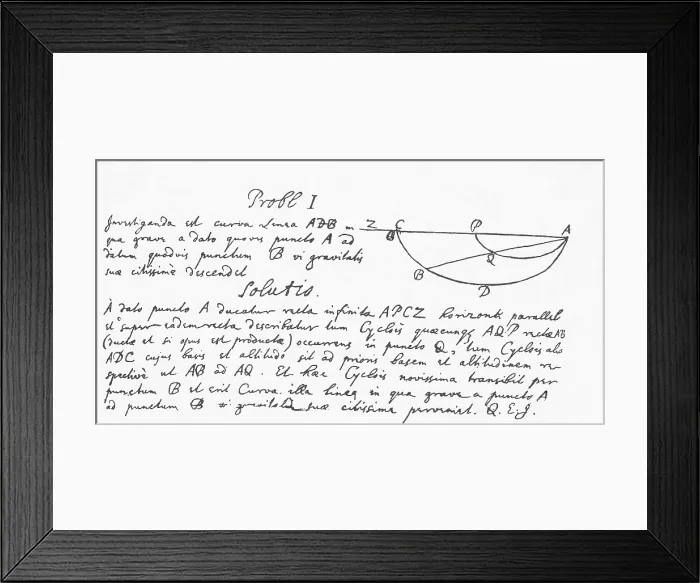 Probl I
Investiganda est curva Linea ADB in
qua grave a dato quovis puncto A ad
datum quodvis punctum B vi gravitatis
suæ citissimè descendet
Z C P A
B
Q
B
D
Solutio.
A dato puncto A ducatur recta infinita APCZ horizonti parallela
et super eadem recta describatur tum Cyclois quæcunq AQP rectæ AB
(ducta et si opus est producta) occurrens in puncto Q, tum Cyclois alia
ADC cujus basis et altitudo sit ad prioris basem et altitudinem re
spectivè ut AB ad AQ. Et hæc Cyclois novissima transibit per
punctum B et erit Curva illa linea in qua grave a puncto A
ad punctum B vi gravitatis suæ citissime perveniet. Q.E.I.